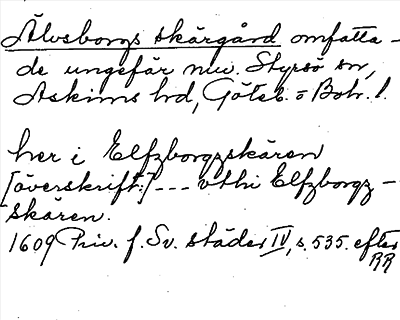 Älvsborgs skärgård omfatta-
de ungefär nuv. Styrsö sn,
Askims hd, Göteb. o Boh. l.
her i Elfzborgzskären
[överskrift:] --- vthi Elfzborgz-
skären.
1609 Priv. f. Sv. städer IV, s. 535. efter
RR